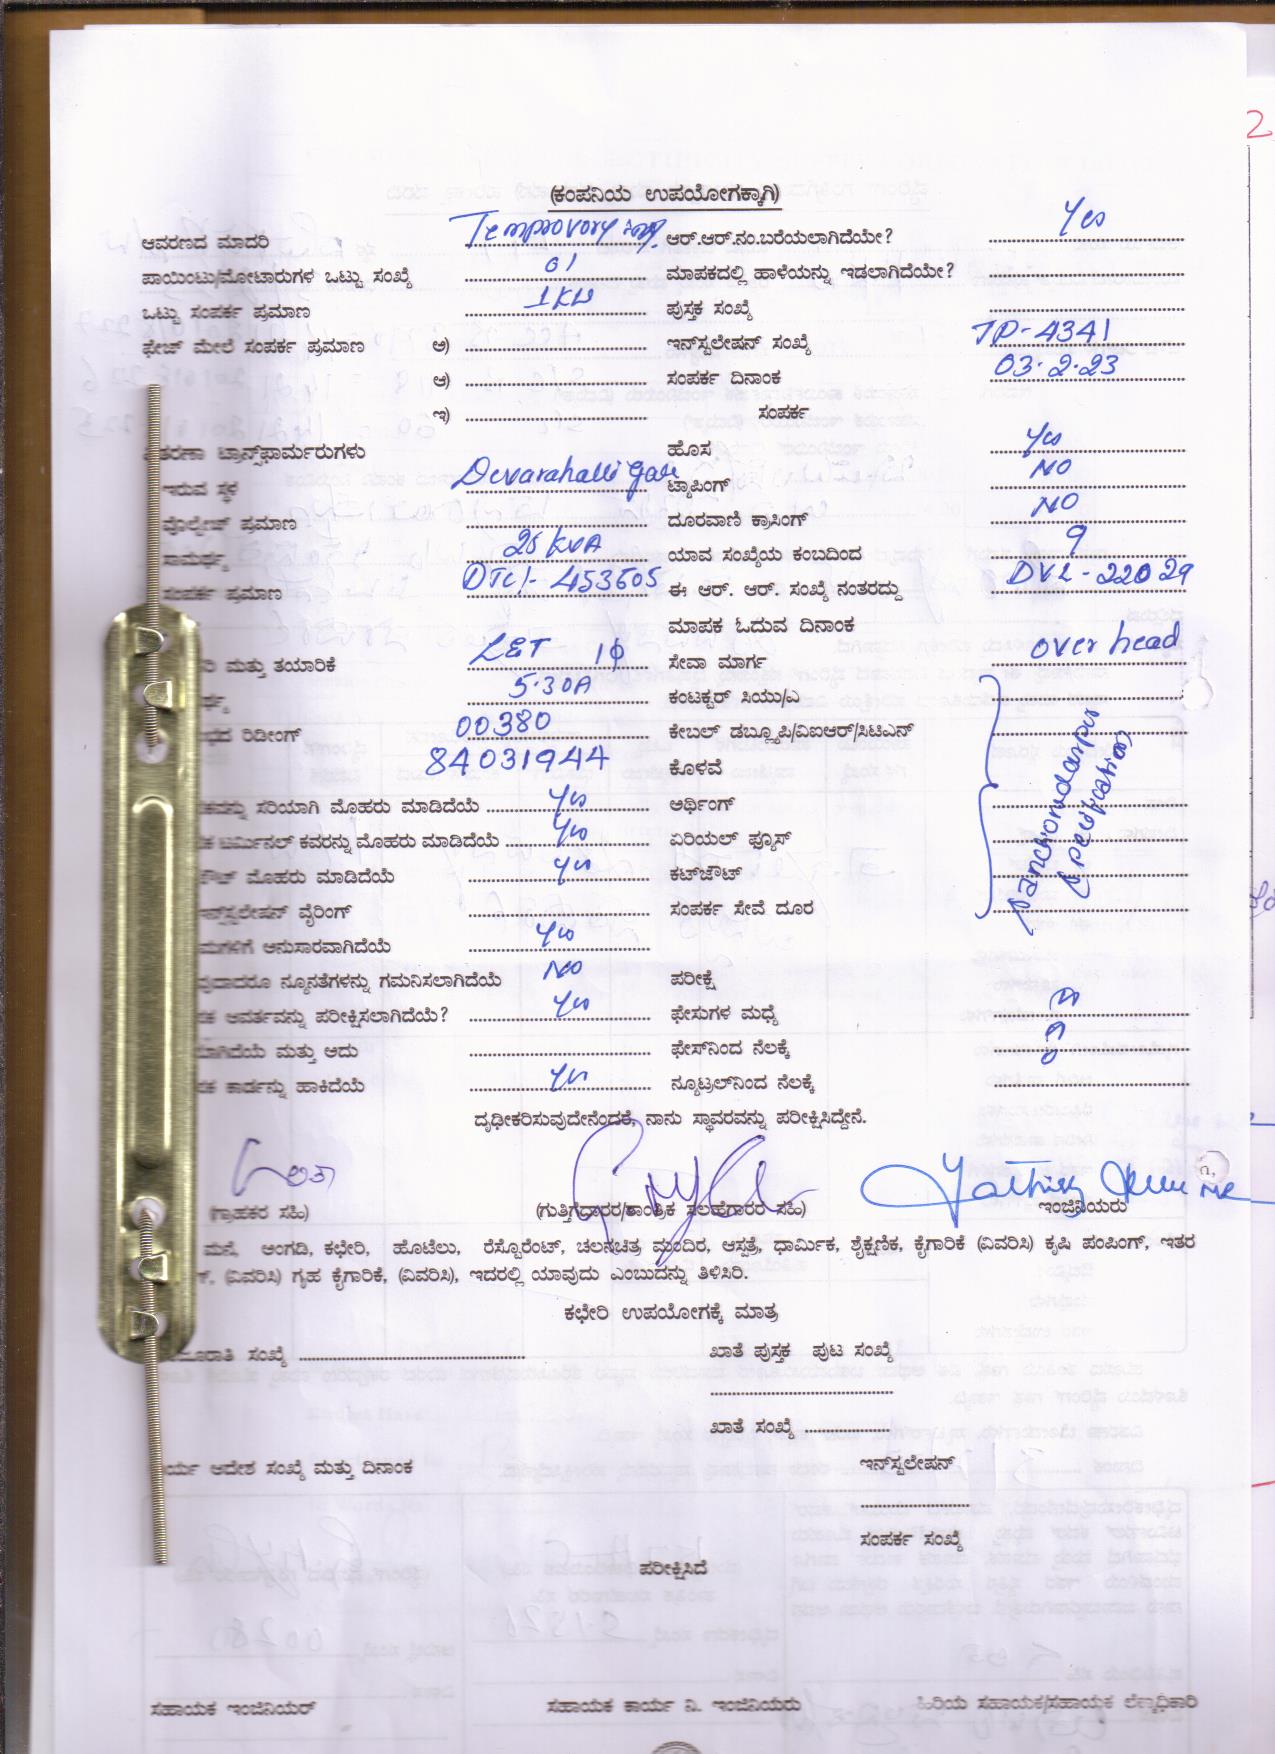 (ಕಂಪನಿಯ ಉಪಯೋಗಕ್ಕಾಗಿ)
ಆವರಣದ ಮಾದರಿ Temprovory ಆರ್.ಆರ್.ನಂ.ಬರೆಯಲಾಗಿದೆಯೇ? Yes
ಪಾಯಿಂಟು/ಮೋಟಾರುಗಳ ಒಟ್ಟು ಸಂಖ್ಯೆ 01 ಮಾಪಕದಲ್ಲಿ ಹಾಳೆಯನ್ನು ಇಡಲಾಗಿದೆಯೇ?
ಒಟ್ಟು ಸಂಪರ್ಕ ಪ್ರಮಾಣ 1KW ಪುಸ್ತಕ ಸಂಖ್ಯೆ
ಫೇಜ್ ಮೇಲೆ ಸಂಪರ್ಕ ಪ್ರಮಾಣ ಅ) ಇನ್‌ಸ್ಟಲೇಷನ್ ಸಂಖ್ಯೆ TP-4341
ಆ) ಸಂಪರ್ಕ ದಿನಾಂಕ 03.2.23
ಇ) ಸಂಪರ್ಕ
ತರಣಾ ಟ್ರಾನ್ಸ್‌ಫಾರ್ಮರುಗಳು ಹೊಸ Yes
ಇರುವ ಸ್ಥಳ Devarahalli Gate ಟ್ಯಾಪಿಂಗ್ NO
ವೊಲ್ಟೇಜ್ ಪ್ರಮಾಣ ದೂರವಾಣಿ ಕ್ರಾಸಿಂಗ್ NO
ಸಾಮರ್ಥ್ಯ 25 KVA ಯಾವ ಸಂಖ್ಯೆಯ ಕಂಬದಿಂದ 9
ಸಂಪರ್ಕ ಪ್ರಮಾಣ DTC/- 453605 ಈ ಆರ್. ಆರ್. ಸಂಖ್ಯೆ ನಂತರದ್ದು DVL-22029
ಮಾಪಕ ಓದುವ ದಿನಾಂಕ
ರಿ ಮತ್ತು ತಯಾರಿಕೆ L&T 1ϕ ಸೇವಾ ಮಾರ್ಗ over head
ರ್ಥ್ಯ 5-30A ಕಂಟಕ್ಟರ್ ಸಿಯು/ಎ
ಭದ ರಿಡೀಂಗ್ 00380 ಕೇಬಲ್ ಡಬ್ಲ್ಯೂಪಿ/ವಿಐಆರ್/ಸಿಟಿಎನ್
84031944 ಕೊಳವೆ
ಕವನ್ನು ಸರಿಯಾಗಿ ಮೊಹರು ಮಾಡಿದೆಯೆ Yes ಅರ್ಥಿಂಗ್
ಕ ಟರ್ಮಿನಲ್ ಕವರನ್ನು ಮೊಹರು ಮಾಡಿದೆಯೆ Yes ಏರಿಯಲ್ ಫ್ಯೂಸ್
ಔಟ್ ಮೊಹರು ಮಾಡಿದೆಯೆ Yes ಕಟ್‌ಔಟ್
ಇನ್‌ಸ್ಟಲೇಷನ್ ವೈರಿಂಗ್ ಸಂಪರ್ಕ ಸೇವೆ ದೂರ
ಮಗಳಿಗೆ ಅನುಸಾರವಾಗಿದೆಯೆ Yes
ವುದಾದರೂ ನ್ಯೂನತೆಗಳನ್ನು ಗಮನಿಸಲಾಗಿದೆಯೆ NO ಪರೀಕ್ಷೆ
ಕ ಅವರ್ತವನ್ನು ಪರೀಕ್ಷಿಸಲಾಗಿದೆಯೆ? Yes ಫೇಸುಗಳ ಮಧ್ಯೆ
ಯಾಗಿದೆಯೆ ಮತ್ತು ಅದು ಫೇಸ್‌ನಿಂದ ನೆಲಕ್ಕೆ
ಕ ಕಾರ್ಡನ್ನು ಹಾಕಿದೆಯೆ Yes ನ್ಯೂಟ್ರಲ್‌ನಿಂದ ನೆಲಕ್ಕೆ
ದೃಢೀಕರಿಸುವುದೇನೆಂದರೆ, ನಾನು ಸ್ಥಾವರವನ್ನು ಪರೀಕ್ಷಿಸಿದ್ದೇನೆ.
(ಗ್ರಾಹಕರ ಸಹಿ) (ಗುತ್ತಿಗೆದಾರರ/ತಾಂತ್ರಿಕ ಸಲಹೆಗಾರರ ಸಹಿ) ಇಂಜಿನಿಯರು
ಮನೆ, ಅಂಗಡಿ, ಕಛೇರಿ, ಹೊಟೆಲು, ರೆಸ್ಟೊರೆಂಟ್, ಚಲನಚಿತ್ರ ಮಂದಿರ, ಆಸ್ಪತ್ರೆ, ಧಾರ್ಮಿಕ, ಶೈಕ್ಷಣಿಕ, ಕೈಗಾರಿಕೆ (ವಿವರಿಸಿ) ಕೃಷಿ ಪಂಪಿಂಗ್, ಇತರ
(ವಿವರಿಸಿ) ಗೃಹ ಕೈಗಾರಿಕೆ, (ವಿವರಿಸಿ), ಇದರಲ್ಲಿ ಯಾವುದು ಎಂಬುದನ್ನು ತಿಳಿಸಿರಿ.
ಕಛೇರಿ ಉಪಯೋಗಕ್ಕೆ ಮಾತ್ರ
ಮೂರಾತಿ ಸಂಖ್ಯೆ ಖಾತೆ ಪುಸ್ತಕ ಪುಟ ಸಂಖ್ಯೆ
ಖಾತೆ ಸಂಖ್ಯೆ
ರ್ಯ ಆದೇಶ ಸಂಖ್ಯೆ ಮತ್ತು ದಿನಾಂಕ ಇನ್‌ಸ್ಟಲೇಷನ್
ಸಂಪರ್ಕ ಸಂಖ್ಯೆ
ಪರೀಕ್ಷಿಸಿದೆ
ಸಹಾಯಕ ಇಂಜಿನಿಯರ್ ಸಹಾಯಕ ಕಾರ್ಯ ನಿ. ಇಂಜಿನಿಯರು ಹಿರಿಯ ಸಹಾಯಕ/ಸಹಾಯಕ ಲೆಕ್ಕಾಧಿಕಾರಿ